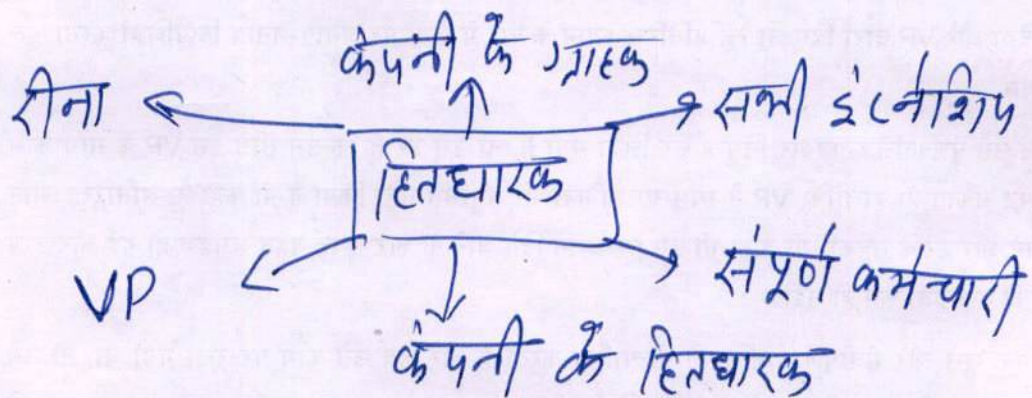 कंपनी के ग्राहक
रीना
सभी इंटर्नशिप
हितधारक
VP
संपूर्ण कर्मचारी
कंपनी के हितधारक